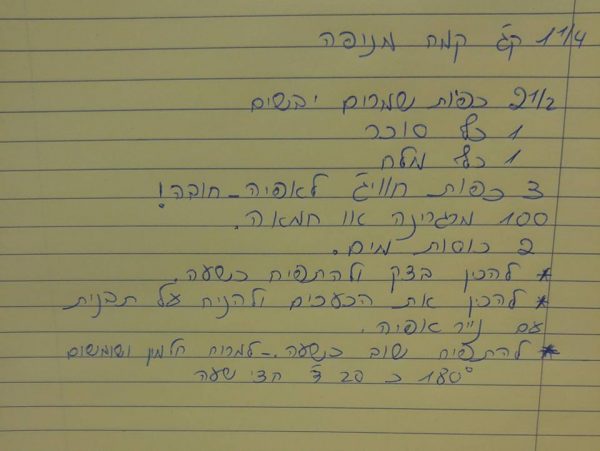 1 1/4 קג קמח מנופה
2 1/2 כפות שמרים יבשים
1 כף סוכר
1 כף מלח
3 כפות חוויג לאפיה - חובה!
100 מרגרינה או חמאה.
2 כוסות מים.
* להכין בצק ולהתפיח כשעה.
* להכין את הכעכים ולהניח על תבנית
עם נייר אפיה.
* להתפיח שוב כשעה. - למרוח חלמון ושומשום
180° כ 20 ד' חצי שעה